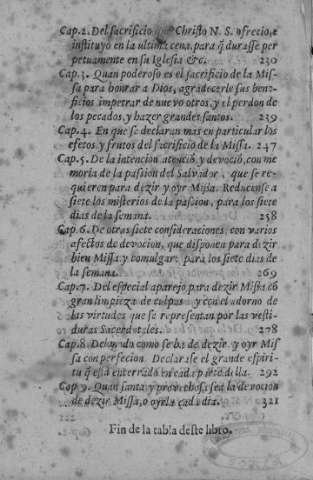 Cap. 2. Del sacrificio que Christo N. S. ofrecio, e
instituyó en la ultima cena, para q̃ durasse per
petuamente en su Iglesia &c. 230
Cap. 3. Quan poderoso es el sacrificio de la Mis-
sa para honrar a Dios, agradecerle sus bene-
ficios impetrar de nuevo otros, y el perdon de
los pecados, y hazer grandes santos. 239
Cap. 4. En que se declaran mas en particular los
efetos y frutos del sacrificio de la Missa. 247
Cap. 5. De la intencion atẽciõ y devociõ, con me
moria de la passion del Salvador, que se re-
quieren para dezir y oyr Missa. Reducense a
siete los misterios de la passion, para los siete
dias de la semana. 258
Cap. 6. De otras siete consideraciones, con varios
afectos de devocion, que disponen para dezir
bien Missa y comulgar: para los siete dias de
la semana. 269
Cap. 7. Del especial aparejo para dezir Missa cõ
gran limpieza de culpas y con el adorno de
las virtudes que se representan por las vesti-
duras Sacerdotales. 278
Cap. 8. Del modo como se ha de dezir y oyr Mis
sa con perfecion. Declarase el grande espiri-
tu q̃ està enterrado en cada parte della. 292
Cap. 9. Quan santa y provechosa sea la devocion
de dezir Missa, o oyrla cada dia. 321
Fin de la tabla deste libro.